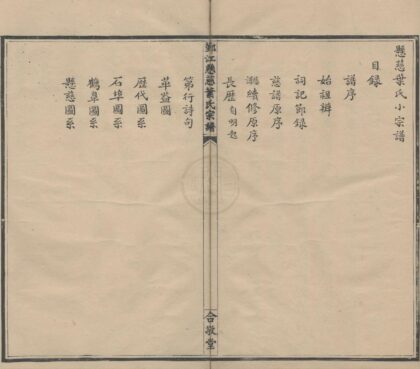 懸慈葉氏小宗譜
目録
譜序
始祖辨
詞記節録
慈譜原序
續修原序
長歴自明起
鄞江懸慈葉氏宗譜
合敬堂
第行詩句
華葢圖
歴代圖系
石埠圖系
鶴皐圖系
懸慈圖系